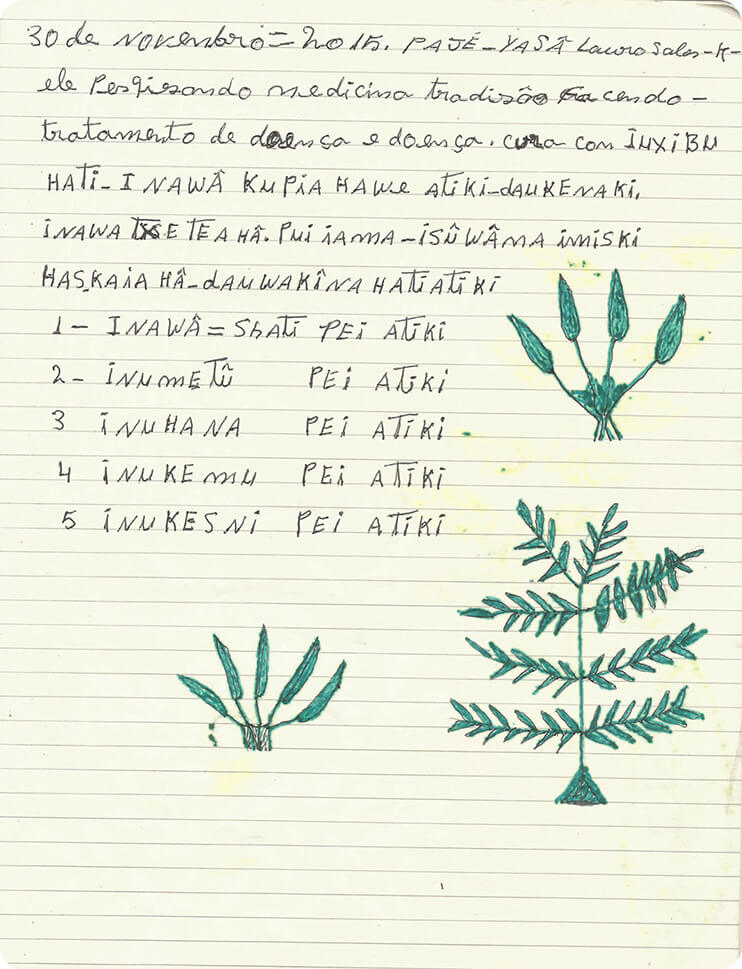 30 de novembro = 2015. PAJÉ - YASÂ Lauro Sales - K -
ele Pesqisando medicina tradisão facendo -
tratamento de doença e doença. cura com INXIBU
HATI - INAWÂ KUPIA HAWE ATIKI - dAUKENAKI.
INAWA TSETEA HÂ. PUI IAMA - ISÛWÂMA IMISKI
HASKAIA HÂ - dAUWAKÎNA HATIATIKI
1 - INAWÂ = Shati PEI ATIKI
2 - INUMETÛ PEI ATIKI
3 INUHANA PEI ATIKI
4 INUKEMU PEI ATIKI
5 INUKESNI PEI ATIKI